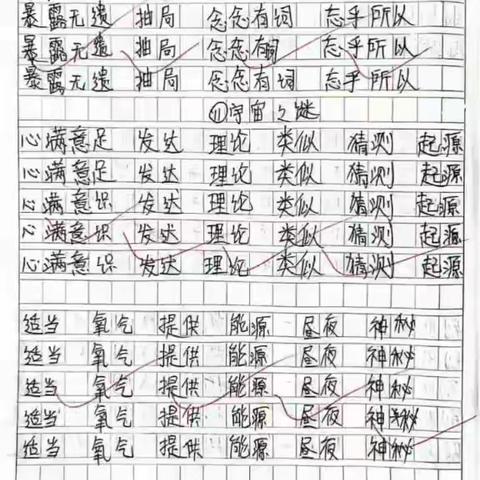 暴露无遗 抽局 念念有词 忘乎所以
暴露无遗 抽局 念念有词 忘乎所以
暴露无遗 抽局 念念有词 忘乎所以
⑪宇宙之谜
心满意足 发达 理论 类似 猜测 起源
心满意足 发达 理论 类似 猜测 起源
心满意识 发达 理论 类似 猜测 起源
心满意识 发达 理论 类似 猜测 起源
心满意识 发达 理论 类似 猜测 起源
适当 氧气 提供 能源 昼夜 神秘
适当 氧气 提供 能源 昼夜 神秘
适当 氧气 提供 能源 昼夜 神秘
适当 氧气 提供 能源 昼夜 神秘
适当 氧气 提供 能源 昼夜 神秘